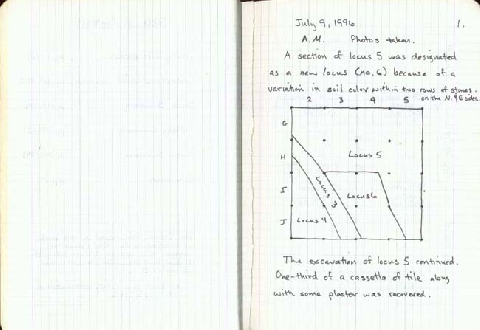 July 9, 1996 1.
A.M. Photos taken.
A section of locus 5 was designated
as a new locus (no. 6) because of a
variation in soil color within two rows of stones.
on the N. & S sides.
2 3 4 5
G
H
I
J
Locus 5
Locus 3
Locus 6
Locus 4
The excavation of locus 5 continued.
One-third of a cassetta of tile along
with some plaster was recovered.